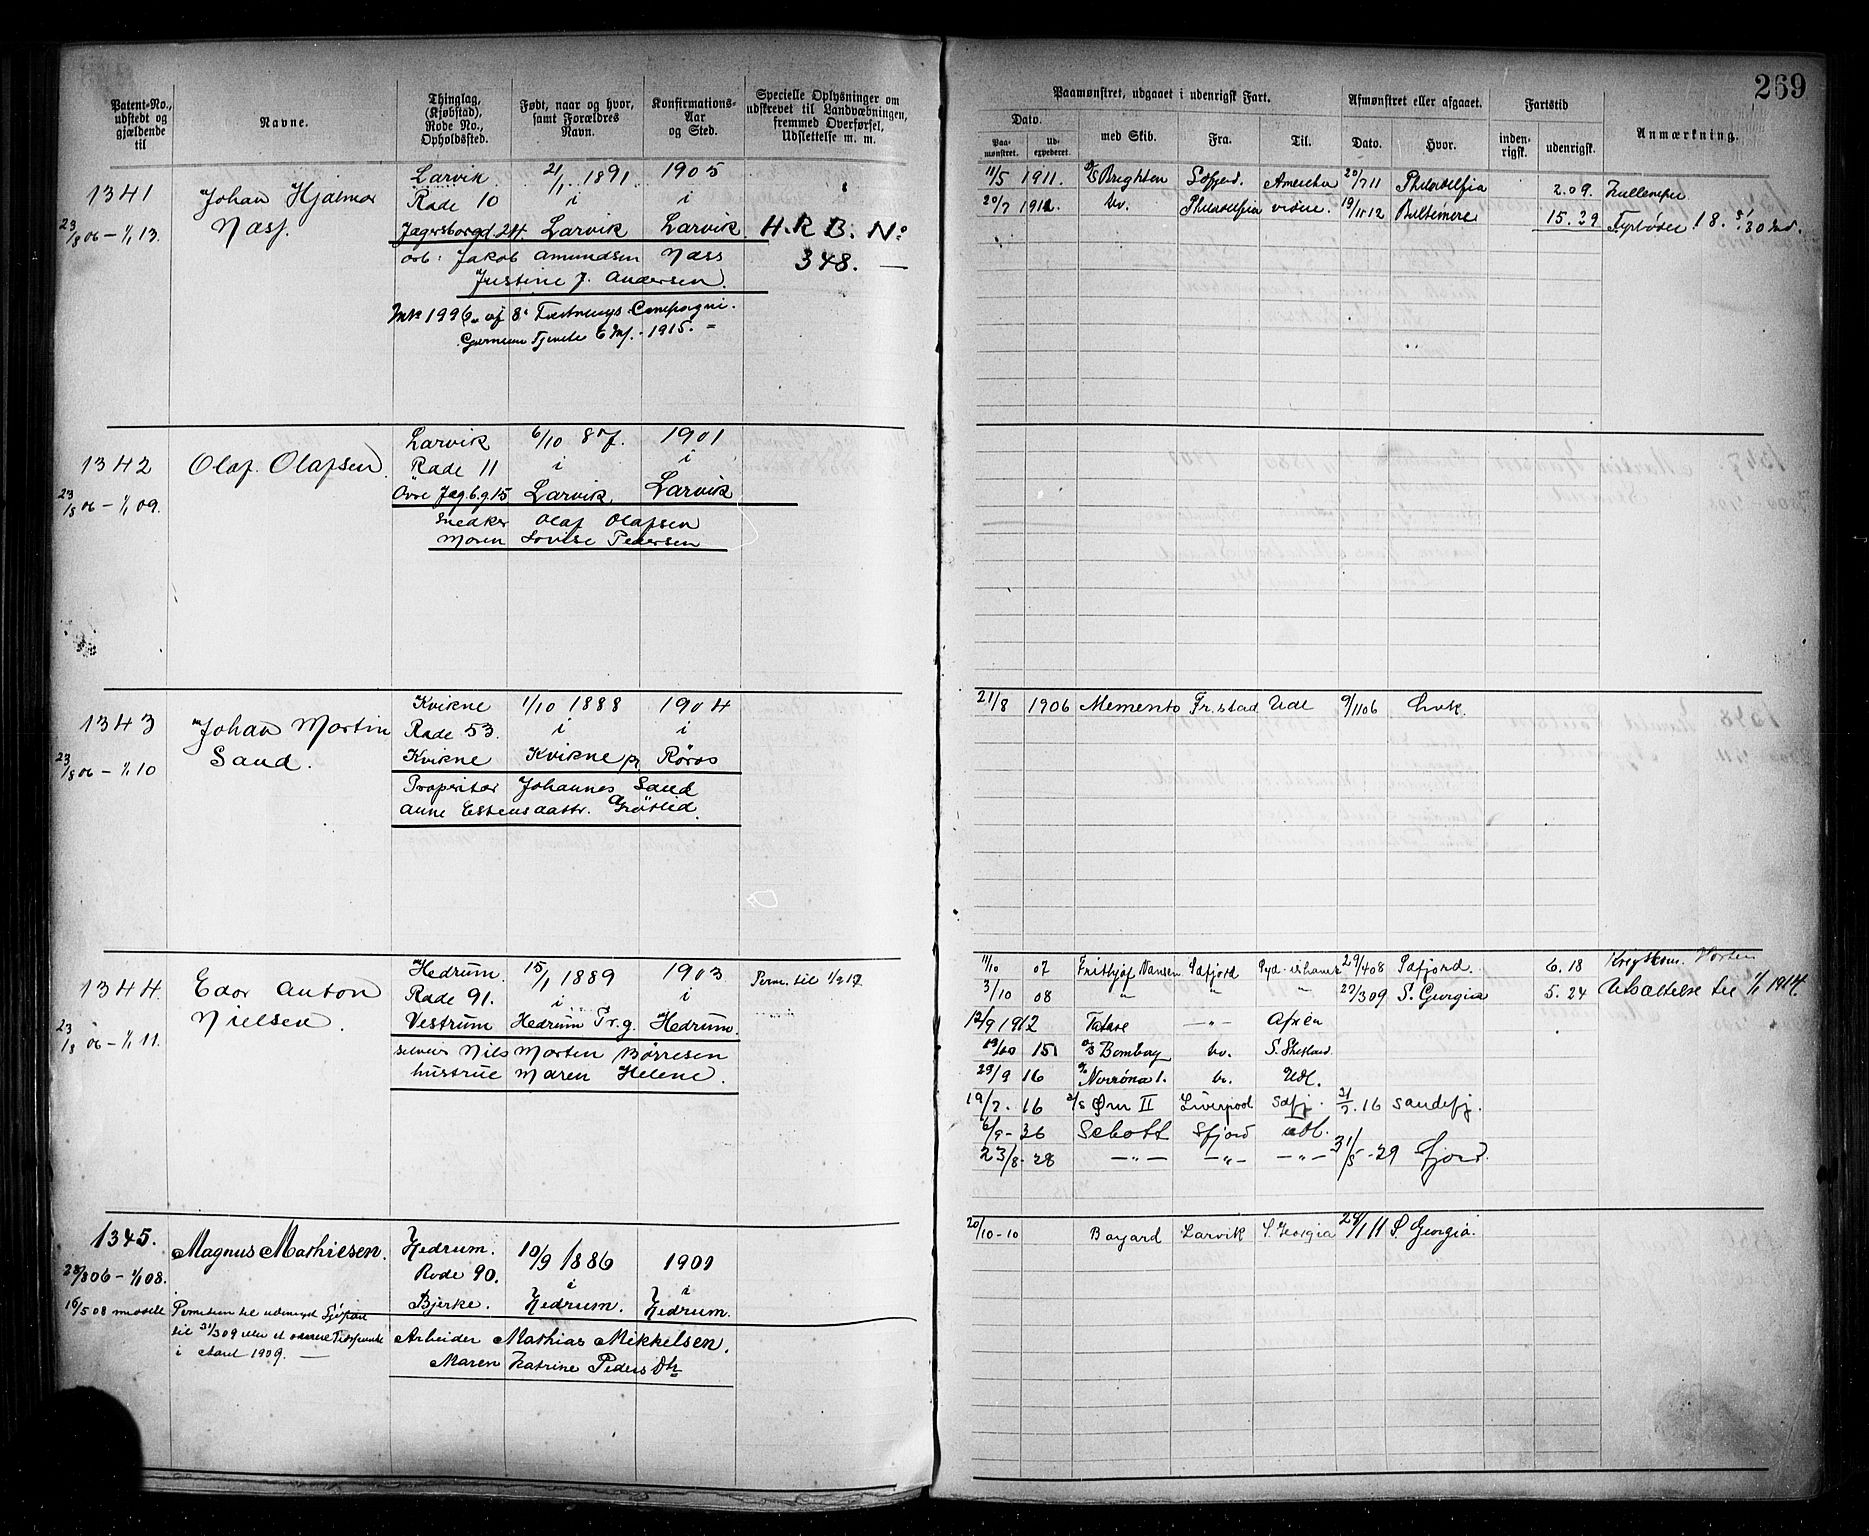 269
Patent-No., udstedt og gjældende til
Navne.
Thinglag, (Kjøbstad), Rode No., Opholdssted.
Født, naar og hvor, samt Forældres Navn.
Konfirmations-Aar og Sted.
Specielle Oplysninger om udskrevet til Landvæbningen, fremmed Overførsel, Udslettelse m. m.
Paamønstret, udgaaet i udenrigsk Fart.
Afmønstret eller afgaaet.
Fartstid
Anmærkning.
Dato.
Paa-mønstret.
Ud-expederet.
med Skib.
Fra.
Til.
Dato.
Hvor.
inden-rigsk.
udenrigsk.
1341
23/8 06 – 1/1 13.
Johan Hjalmar
Næss.
Larvik 21/1 1891 1905
Rode 10 i i
Jegersborgd. 24. Larvik Larvik
arb: Jakob Amundsen Næss
Justine J. Andersen.
H. R. B. No
348. —
11/5 1911. Brighton Sdfjord. Amerika 20/7 11 Philadelfia 2.09.
20/7 Philadelfia videre. Baltimore 15.29 Fyrbøder
1342
23/8 06 – 1/1 09.
Olaf Olafsen
Larvik 6/10 87. 1901
Rode 11 i i
Øvre Jag.b.g. 15 Larvik Larvik
Snedker Olaf Olafsen
Moren Lovise Pedersen
1343
23/8 06 – 1/1 10
Johan Martin
Sand.
Kvikne 1/10 1888 1904
Rode 53. i i
Kvikne Kvikne pr Røros
Propritær Johannes Sand
Anne Estensdattr. Grøtlid.
21/8 1906 Memento Fr.stad Udl 9/11 06 Lvk.
1344
23/8 06 – 1/1 11.
Edor Anton
Nielsen.
Hedrum 15/1 1889 1903
Rode 91. i i
Vestrum Hedrum Pr.g. Hedrum.
Selveier Nils Martin Børresen
hustrue Maren Helene.
Perm. til 1/2 12
11/10 07 Frithjof Nansen Sdfjord Syd-ishavet 29/4 08 Sdfjord. 6.18
3/10 08 " " " 27/3 09 S. Georgia 5.24 Udsættelse til 1/1 1914.
12/9 1912 —"— Afrika
15 Bombay do. S. Shetland.
29/9 16 Norrøna 1. do. Udl.
19/7. 16 Ørn II Liverpool Sdfj. 31/7.16 Sandefj.
6/9 – 26 Schott Sfjord udl.
23/8 – 28 —"— —"— —"— 31/5 -29 Sfjord.
1345.
23/8 06 – 1/1 08.
16/5 08 meddelt Permision til udenrigsk Sjøfart
til 31/3 09 eller et senere Tidspunkt
i Aaret 1909. —
Magnus Mathiesen.
Hedrum. 10/9 1886 1901
Rode 90. i i
Bjerke. Hedrum. Hedrum.
Arbeider Mathias Mikkelsen.
Maren Katrine Peders Dtr
20/10-10 Bayard Larvik S. Georgia 24/1 11 S. Georgia.